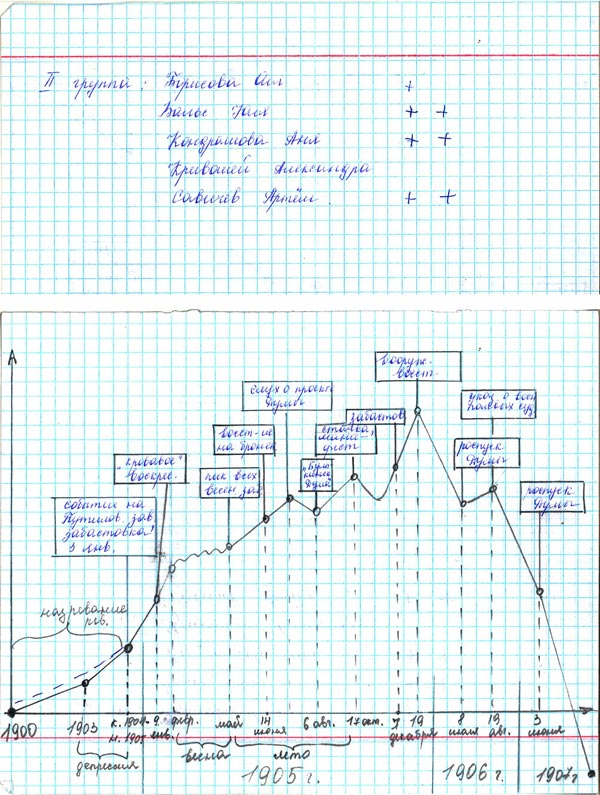 II группа: Борисова Ася +
Вальс Илья + +
Кондрашова Аня + +
Кривошей Александра
Савичев Артём + +
A
вооруж.
восст.
слух о проекте
Думы
указ о воен
полевых суд
забастов
восст-ие
на броненос
отставка
минист
роспуск
Думы
"кровавое"
воскрес.
пик всех
весен заб
"Булы
гинск
Дума"
роспуск
Думы
события на
Путилов. зав.
забастовка!
3 янв.
назревание
рев.
1900
1903
к. 1904-
н. 1905
9
янв.
февр.
май
14
июня
6 авг.
17 окт.
7
19
декабря
8
июля
19
авг.
3
июня
депрессия
весна
лето
1905 г.
1906 г.
1907 г.